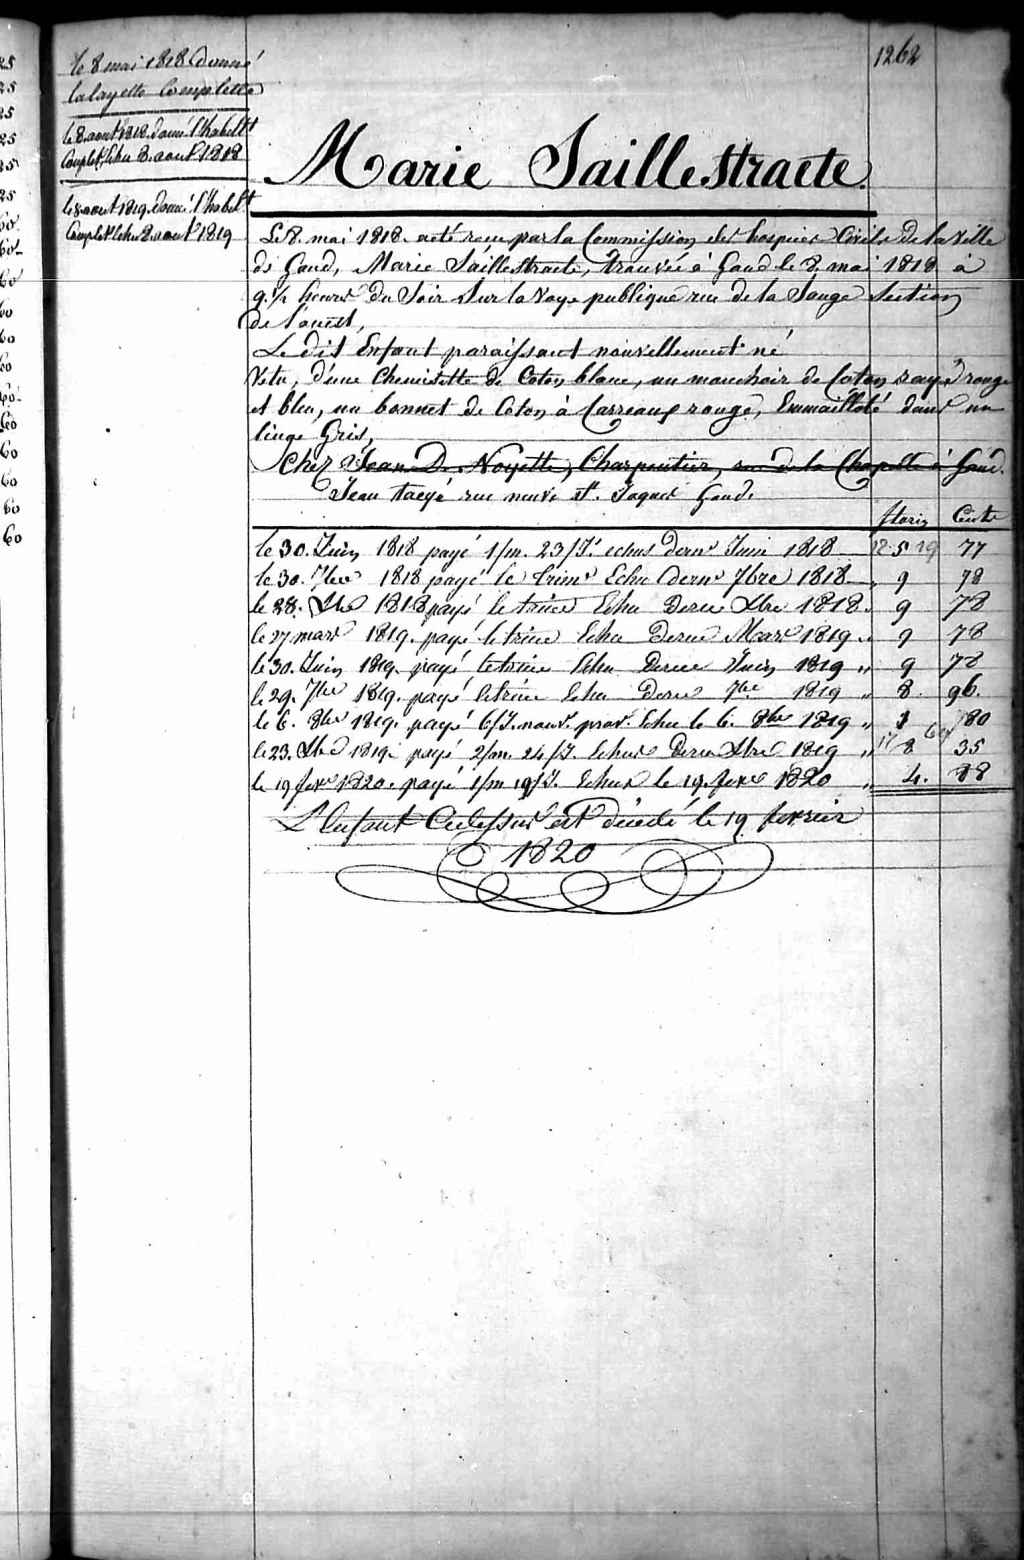 1262
le 8 mai 1818 donné
la layette complette
le 8 aout 1818 donné l'habillt
Complet Echu 8. aout 1818
le 8 aout 1819 donné l'habillt
Complet Echu 8. aout 1819
Marie Saillestraete.
Le 8. mai 1818. a été reçu par la Commission des hospices Civils de la Ville
de Gand, Marie Saillestraete, trouvée à Gand le 8. mai 1818 à
9. 1/2 heures du Soir Sur la Voye publique rue de la Sauge Section
de l'ouest,
Le dit Enfant paraissant nouvellement né
Vetu, d'une Chemisette de Coton blanc, un mouchoir de Coton rayé rouge
et bleu, un bonnet de Coton à Carreaux rouge, Emmailloté dans un
linge Gris,
Chez Jean De Noyette, Charpentier, rue de la Chapelle à Gand.
Jean taeyé rue neuve St. Jaques Gand.
florin Cents
le 30. Juin 1818 payé 1/m. 23/J. echus dernr Juin 1818 12 5 19 77
le 30. 7bre 1818 payé le trimr Echu dernr 7bre 1818 " 9 78
le 28. Xbre 1818 payé le trim Echu Dernr Xbre 1818 " 9 78
le 27 mars 1819. payé le trim Echu Dernr Mars 1819 " 9 78
le 30. Juin 1819. payé le trim Echu Dernr Juin 1819 " 9 78
le 29. 7bre 1819. payé le trim Echu Dernr 7bre 1819 " 8. 96.
le 6. 8bre 1819. payé 6/J. nour. prov. Echu le 6. 8bre 1819 " 1 80
le 23. Xbre 1819. payé 2/m. 24/J. Echus Dernr Xbre 1819 " 8 35
le 19 fevr 1820. payé 1/m 19/J. Echus le 19. fevr 1820 " 4. 88
L'Enfant Cidessus est décédé le 19 fevrier
1820